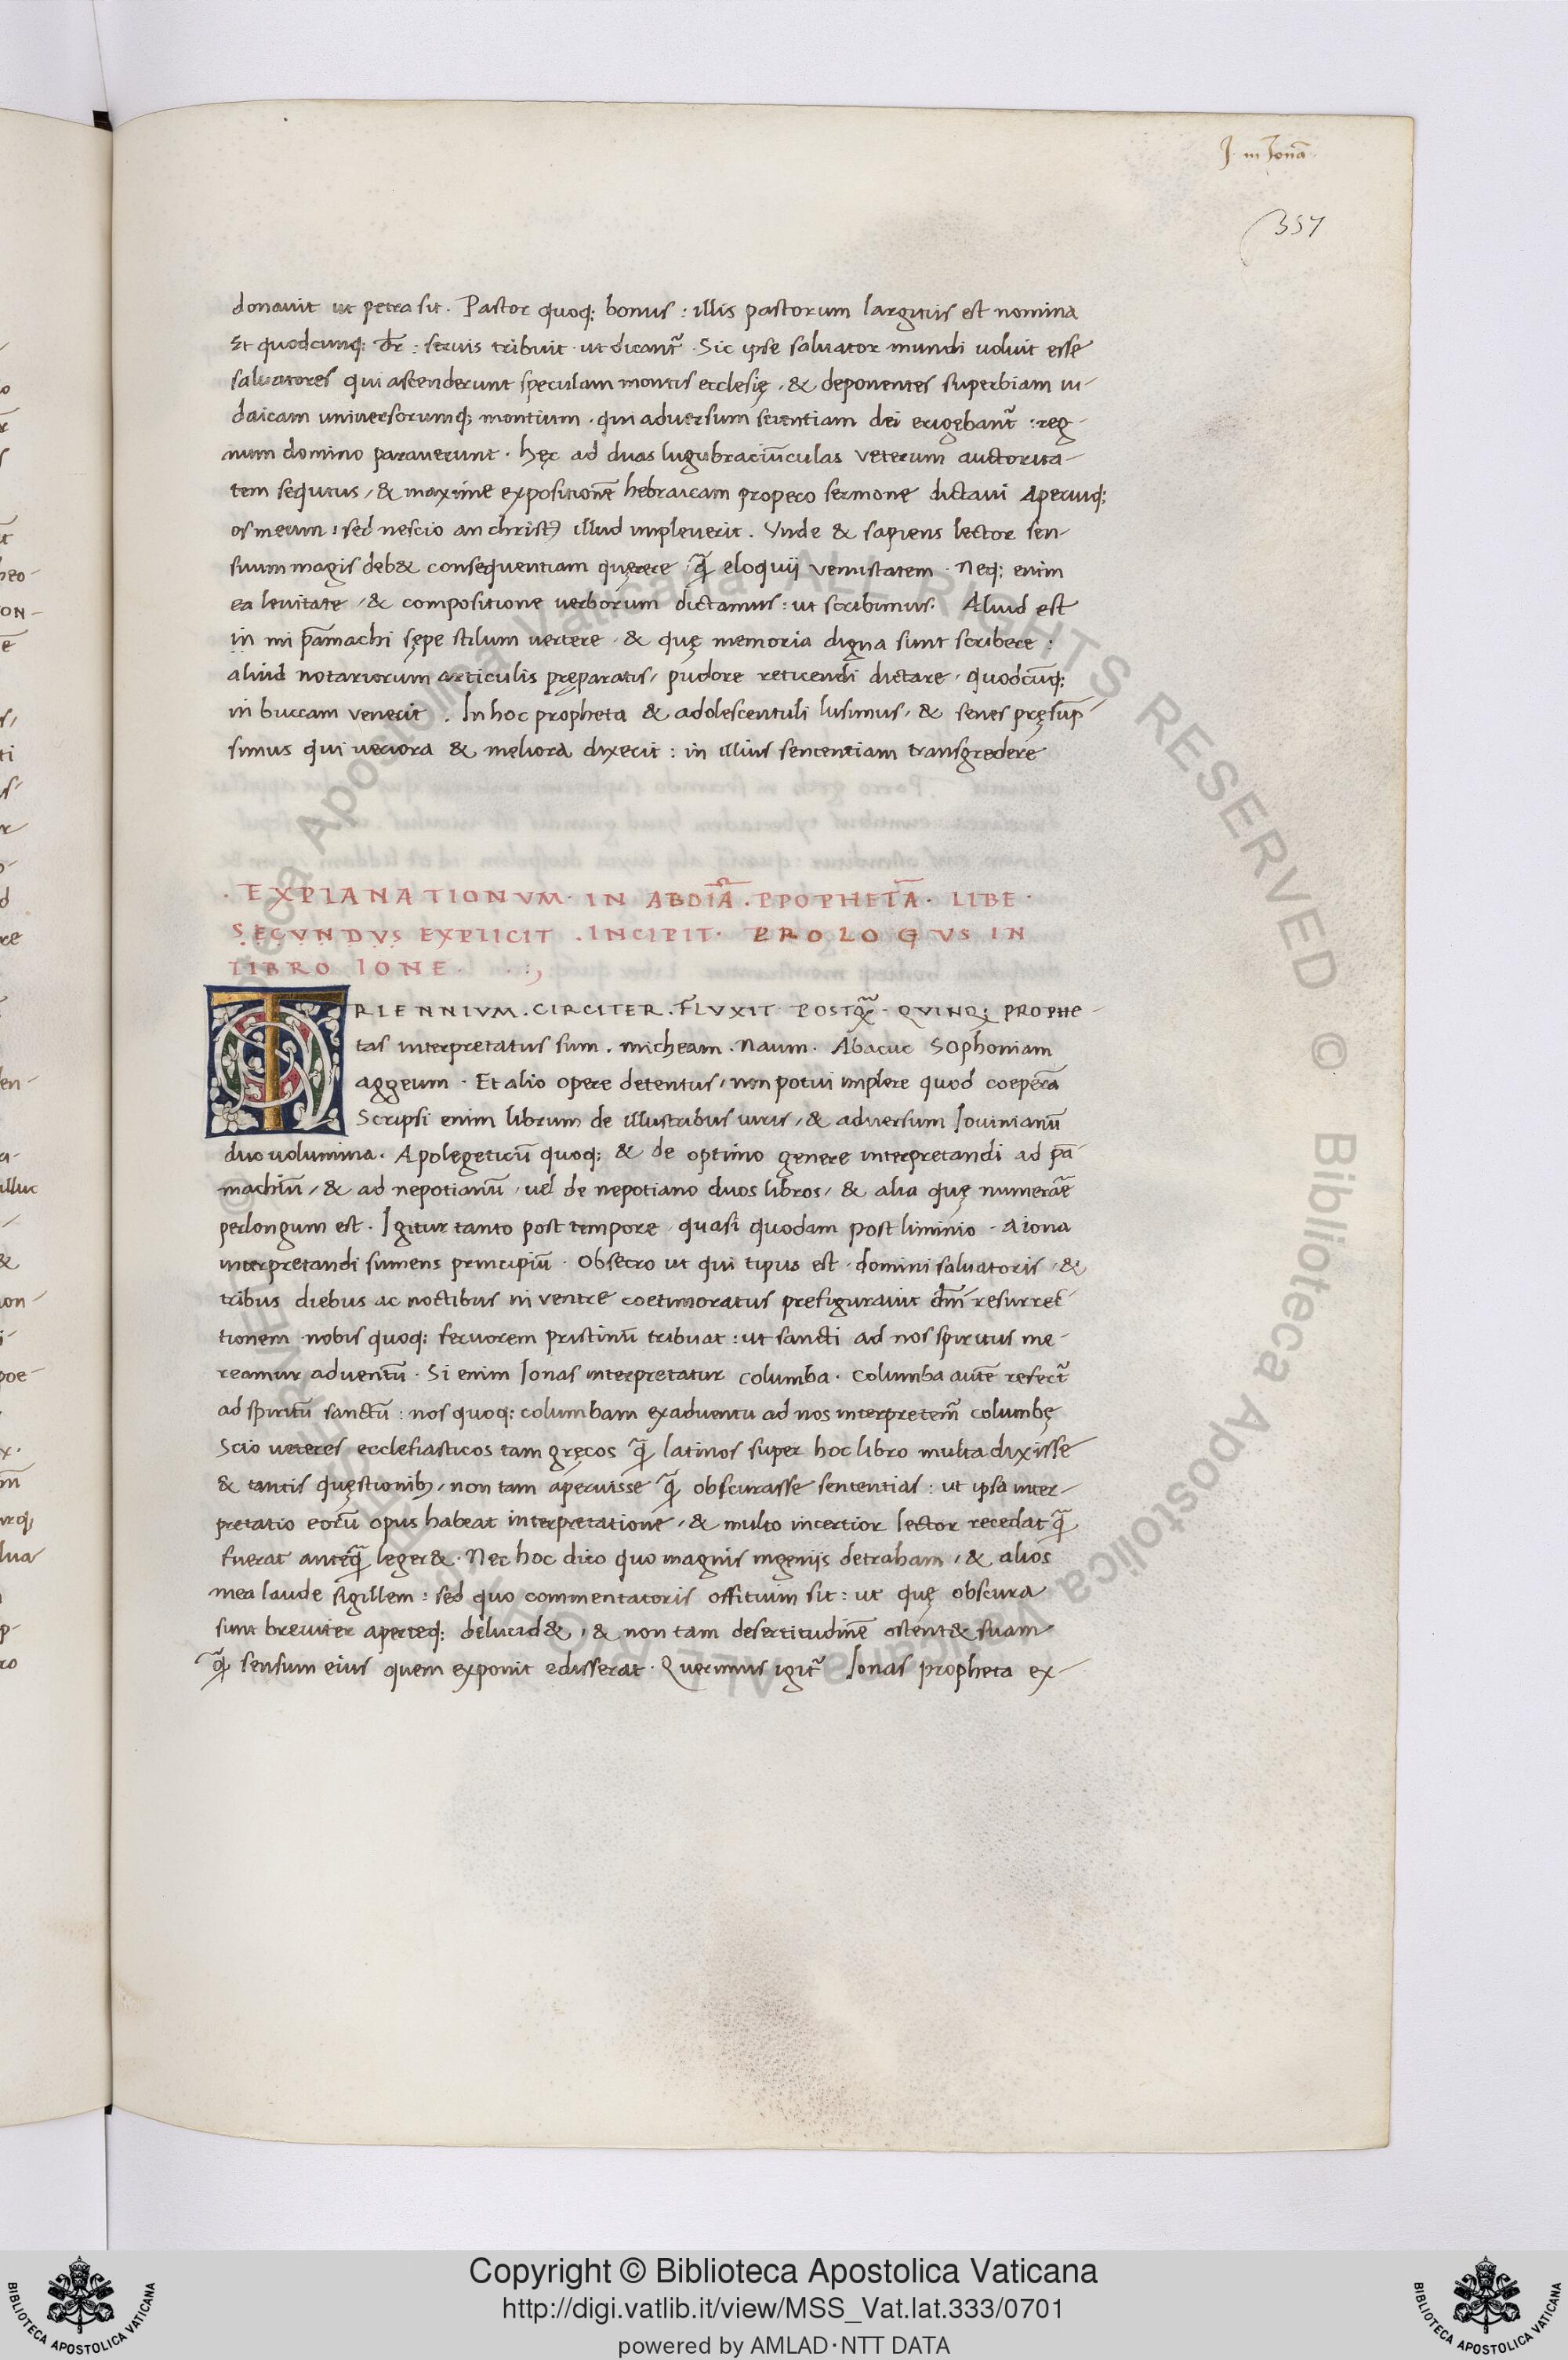 J in Jonā
357
donauit ut petra sit. Pastor quoq; bonus: illis pastorum largitus est nomina
Et quodcunq; dr̄: seruis tribuit ut dicant᷑. Sic ipse saluator mundi uoluit esse
saluatores qui ascenderunt speculam montis ecclesię, & deponentes superbiam iu-
daicam universorumq; montium. qui adversum scientiam dei erigebant᷑: reg-
num domino paraverunt. hęc ad duas lugubraciūculas veterum auctorita-
tem sequtus, & maxime expositionē hebraicam propero sermone dictavi Aperuiq;
os meum: sed nescio an christꝰ illud impleverit. Unde & sapiens lector sen-
suum magis deb& consequentiam quęrere q̄ eloquij venustatem. Neq; enim
ea levitate, & compositione verborum dictamus: ut scribimus. Aliud est
in mi pāmachi sępe stilum vertere. & quę memoria digna sunt scribere:
aliud notariorum articulis pręparatis, pudore reticendi dictare, quodcūq;
in buccam venerit. In hoc propheta & adolescentuli lusimus, & senes pręsūp-
simus qui veriora & meliora dixerit: in illius sententiam transgredere
. EXPLANATIONVM. IN ABDIĀ. PPOPHETĀ. LIBE.
SECVNDVS EXPLICIT .INCIPIT. PROLOGVS IN
LIBRO IONE. . :,
TRIENNIVM. CIRCITER. FLVXIT POSTQ̄. QVINQ; PROPHE-
tas interpretatus sum. micheam. Naum. Abacuc Sophoniam
aggeum. Et alio opere detentus, non potui implere quod coeperā
Scripsi enim librum de illustribus viris, & adversum Iovinianū
duo volumina. Apolegeticū quoq; & de optimo genere interpretandi ad pā
machiū, & ad nepotianū, vel de nepotiano duos libros, & alia quę numerāe
perlongum est. Igitur tanto post tempore, quasi quodam post liminio. A iona
interpretandi sumens principiū. Obsecro ut qui tipus est domini salvatoris, &
tribus diebus ac noctibus in ventre coetimoratus prefiguravit dn̄i resurrec-
tionem nobis quoq; fervorem pristinū tribuat: ut sancti ad nos spiritus me-
reamur adventū. Si enim Ionas interpretatur columba. columba autē refert᷑
ad spiritū sanctū: nos quoq; columbam exadventu ad nos interpretem̄ columbę
Scio veteres ecclesiasticos tam gręcos q̄ latinos super hoc libro multa dixisse
& tantis quęstionibꝫ, non tam aperuisse q̄ obscurasse sententias: ut ipsa inter-
pretatio eorū opus habeat interpretatione, & multo incertior lector recedat q̄
fuerat anteq̄ leger&. Nec hoc dico quo magnis ingenijs detraham, & alios
mea laude sigillem: sed quo commentatoris offitium sit: ut quę obscura
sunt breviter aperteq; delucid&, & non tam desertitudinē ostent& suam
q̄ sensum eius quem exponit edisserat. Querimus igit᷑ Ionas propheta ex-
Copyright © Biblioteca Apostolica Vaticana
http://digi.vatlib.it/view/MSS_Vat.lat.333/0701
powered by AMLAD·NTT DATA